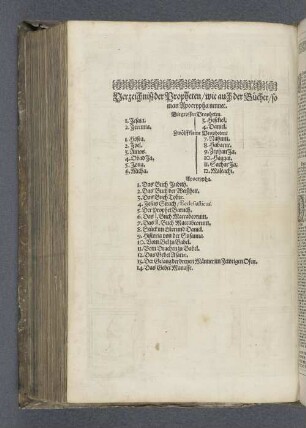 Verzeichniß der Propheten / wie auch der Bücher / so
man Apocrypha nennet.
Vier grosse Propheten.
1. Jesaia. 3. Hesekiel.
2. Jeremia. 4. Daniel.
Zwölff kleine Propheten.
1. Hosea. 7. Nahum.
2. Joel. 8. Habacuc.
3. Amos. 9. Zephanja.
4. Obadja. 10. Haggai.
5. Jona. 11. Sacharja.
6. Micha. 12. Maleachi.
Apocrypha.
1. Das Buch Judith.
2. Das Buch der Weißheit.
3. Das Buch Tobie.
4. Jesus Sirach / Ecclesiasticus.
5. Der Prophet Baruch.
6. Das I. Buch Maccabeorum.
7. Das II. Buch Maccabeorum.
8. Stück in Esther und Daniel.
9. Historia von der Susanna.
10. Vom Bel zu Babel.
11. Vom Drachen zu Babel.
12. Das Gebet Asarie.
13. Der Gesang der dreyen Männer im Fewrigen Ofen.
14. Das Gebet Manasse.